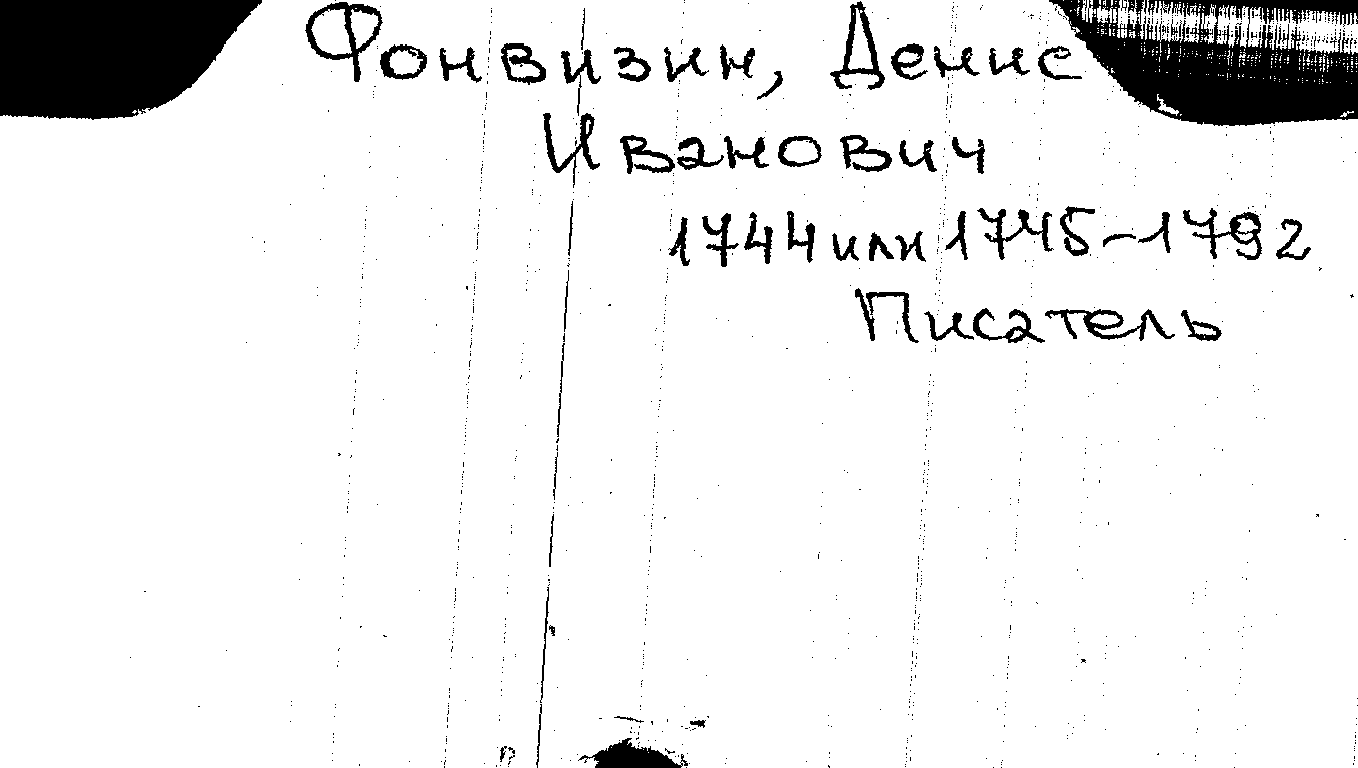 Фонвизин, Денис
Иванович
1744 или 1745-1792
Писатель